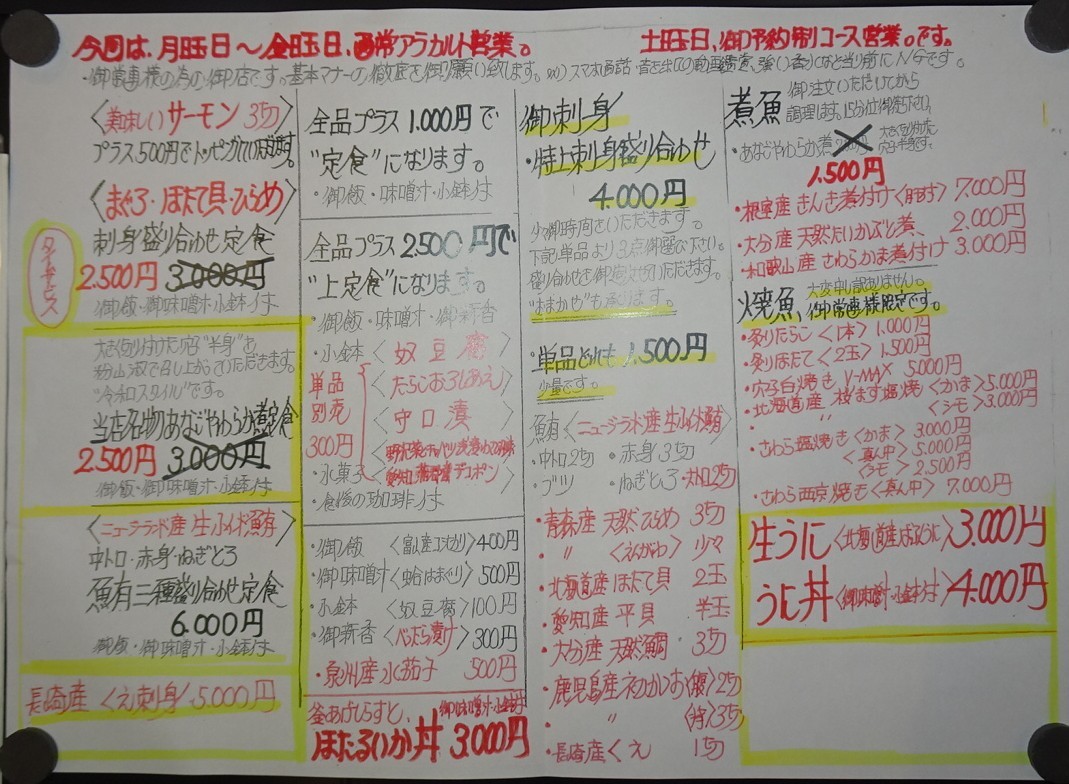 今週は、月曜日～金曜日、通常アラカルト営業。
土曜日、御予約制コース営業。です。
・御常連様の為の御店です。基本マナーの徹底を御願い致します。
〈美味しいサーモン3切〉
プラス500円でトッピングいただけます。
〈まぐろ・ほたて貝・ひらめ〉
刺身盛り合わせ定食
2.500円 3.000円
御飯・御味噌汁・小鉢付
当店名物あなごやわらか煮定食
2.500円 3.000円
御飯・御味噌汁・小鉢付
〈ニュージーランド産 生インド鮪〉
中トロ・赤身・ねぎとろ
鮪三種盛り合わせ定食
6.000円
御飯・御味噌汁・小鉢付
長崎産 くえ刺身 5.000円
全品プラス1.000円で
"定食"になります。
・御飯・味噌汁・小鉢付
全品プラス2.500円で
"上定食"になります。
・御飯・味噌汁・御新香
・小鉢〈奴豆腐〉
単品別売300円
〈たらこおろしあえ〉
〈守口漬〉
・水菓子
・食後の珈琲付
・御飯 〈富山産コシヒカリ〉400円
・御味噌汁〈蛤はまぐり〉500円
・小鉢 〈奴豆腐〉100円
・御新香〈べったら漬け〉300円
・泉州産水茄子 500円
釜あげしらすと、
御味噌汁・小鉢付
ほたるいか丼 3.000円
御刺身
・特上刺身盛り合わせ
4.000円
少々御時間をいただきます。
下記単品より3点御選び下さい。
"おまかせ"も承ります。
・単品どれも1.500円
少量です。
鮪〈ニュージーランド産生インド鮪〉
・中トロ2切 ・赤身3切
・ブツ ・ねぎとろ・大トロ1切
・青森産 天然ひらめ 3切
・〃 〈えんがわ〉 少々
・北海道産ほたて貝 2玉
・愛知産 平貝 半玉
・大分産 天然鯛 3切
・長崎産くえ 1切
煮魚
御注文いただいてから
調理します。15分位御待ち下さい。
・あなごやわらか煮
1.500円
・根室産きんき煮付け 7.000円
・大分産 天然たいかぶと煮 2.000円
・和歌山産 さわらかま煮付け 3.000円
焼魚
大変申し訳ありません。
御常連様限定です。
・炙りたらこ〈1本〉1.000円
・炙りほたて〈2玉〉1.500円
・穴子白焼き V-MAX 5000円
〈かま〉5.000円
3.000円
・さわら塩焼き〈かま〉3.000円
〈真ん中〉5.000円
2.500円
・さわら西京焼き〈真ん中〉7.000円
生うに〈北海道産ばふんうに〉3.000円
うに丼〈御味噌汁・小鉢付〉4.000円